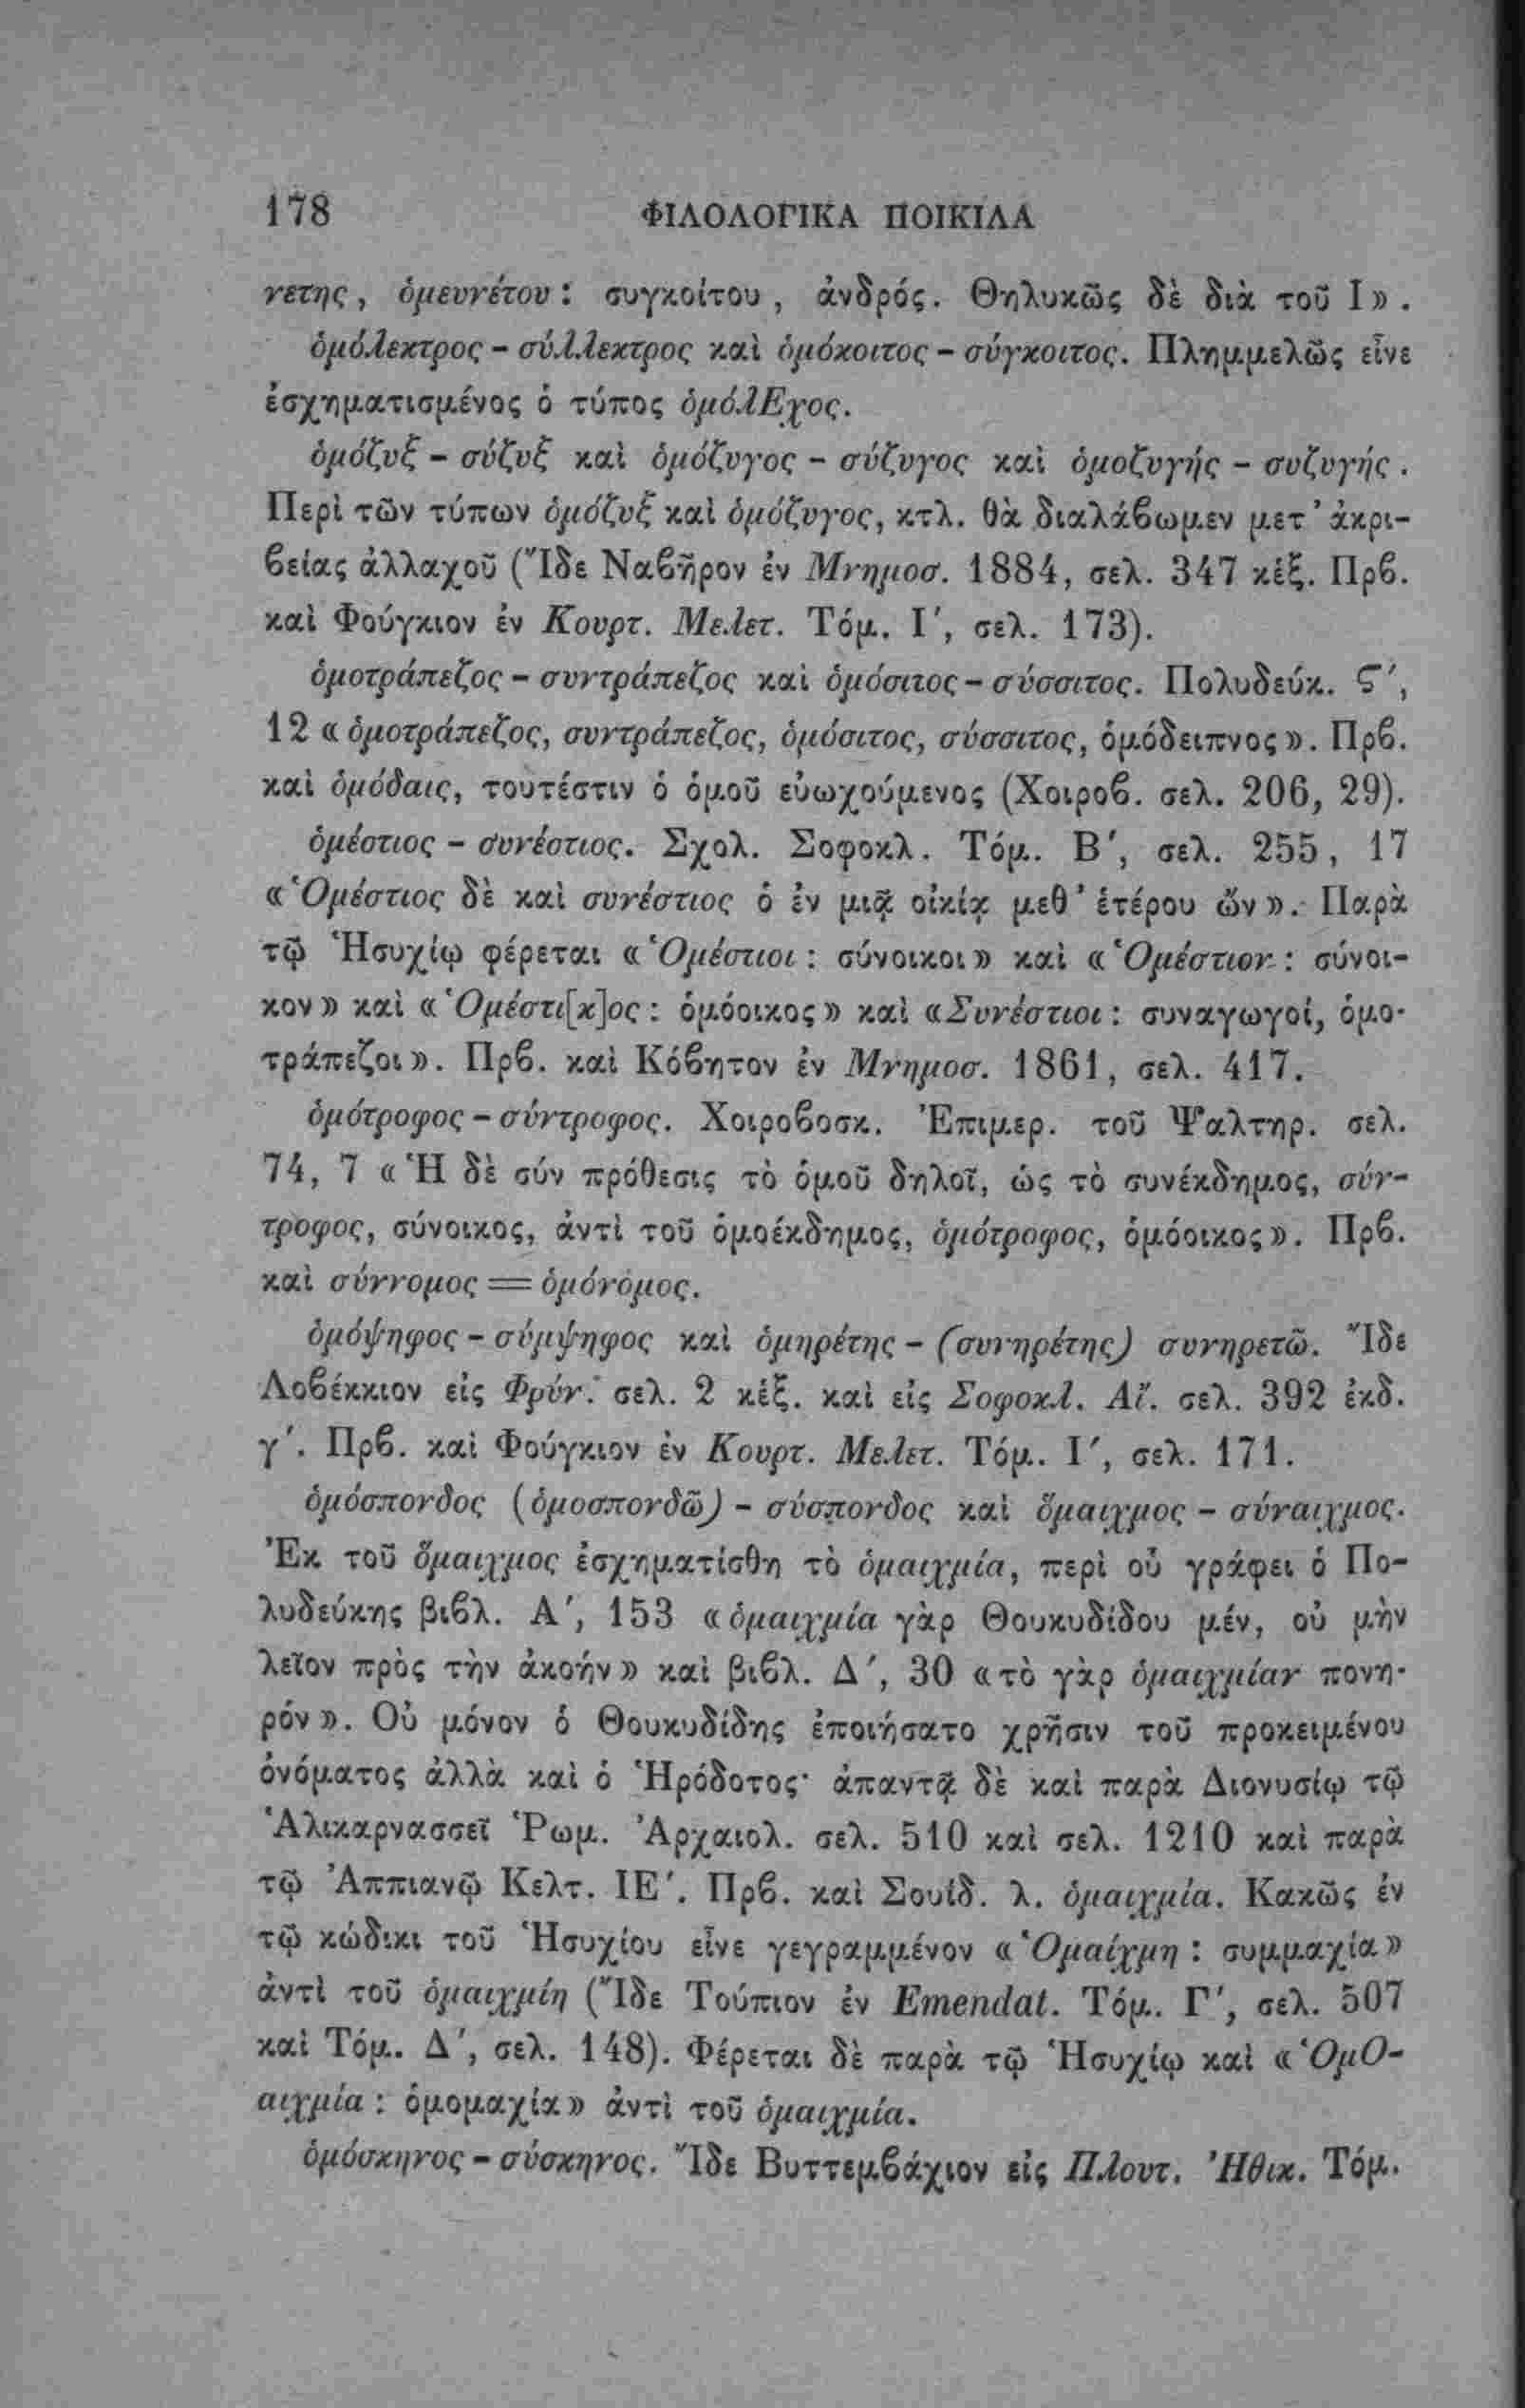 178 ΦΙΛΟΛΟΓΙΚΑ ΠΟΙΚΙΛΑ
νετης, ὁμευνέτου : συγκοίτου, ἀνδρός. Θηλυκῶς δὲ διὰ τοῦ Ι».
ὁμόλεκτρος - σύλλεκτρος καὶ ὁμόκοιτος - σύγκοιτος. Πλημμελῶς εἶνε
ἐσχηματισμένος ὁ τύπος ὁμόλΕχος.
ὁμόζυξ - σύζυξ καὶ ὁμόζυγος - σύζυγος καὶ ὁμοζυγής - συζυγής.
Περὶ τῶν τύπων ὁμόζυξ καὶ ὁμόζυγος, κτλ. θὰ διαλάβωμεν μετ' ἀκρι-
βείας ἀλλαχοῦ (Ἴδε Ναβῆρον ἐν Μνημοσ. 1884, σελ. 347 κἑξ. Πρβ.
καὶ Φούγκιον ἐν Κουρτ. Μελετ. Τόμ. Ι', σελ. 173).
ὁμοτράπεζος - συντράπεζος καὶ ὁμόσιτος - σύσσιτος. Πολυδεύκ. Ϛ',
12 «ὁμοτράπεζος, συντράπεζος, ὁμόσιτος, σύσσιτος, ὁμόδειπνος». Πρβ.
καὶ ὁμόδαις, τουτέστιν ὁ ὁμοῦ εὐωχούμενος (Χοιροβ. σελ. 206, 29).
ὁμέστιος - συνέστιος. Σχολ. Σοφοκλ. Τόμ. Β', σελ. 255, 17
«Ὁμέστιος δὲ καὶ συνέστιος ὁ ἐν μιᾷ οἰκίᾳ μεθ' ἑτέρου ὤν». Παρὰ
τῷ Ἡσυχίῳ φέρεται «Ὁμέστιοι : σύνοικοι» καὶ «Ὁμέστιον : σύνοι-
κον» καὶ «Ὁμέστι[κ]ος : ὁμόοικος» καὶ «Συνέστιοι : συναγωγοί, ὁμο-
τράπεζοι». Πρβ. καὶ Κόβητον ἐν Μνημοσ. 1861, σελ. 417.
ὁμότροφος - σύντροφος. Χοιροβοσκ. Ἐπιμερ. τοῦ Ψαλτηρ. σελ.
74, 7 «Ἡ δὲ σύν πρόθεσις τὸ ὁμοῦ δηλοῖ, ὡς τὸ συνέκδημος, σύν-
τροφος, σύνοικος, ἀντὶ τοῦ ὁμοέκδημος, ὁμότροφος, ὁμόοικος». Πρβ.
καὶ σύννομος = ὁμόνομος.
ὁμόψηφος - σύμψηφος καὶ ὁμηρέτης - (συνηρέτης) συνηρετῶ. Ἴδε
Λοβέκκιον εἰς Φρύν. σελ. 2 κἑξ. καὶ εἰς Σοφοκλ. Αἴ. σελ. 392 ἐκδ.
γ'. Πρβ. καὶ Φούγκιον ἐν Κουρτ. Μελετ. Τόμ. Ι', σελ. 171.
ὁμόσπονδος (ὁμοσπονδῶ) - σύσπονδος καὶ ὅμαιχμος - σύναιχμος.
Ἐκ τοῦ ὅμαιχμος ἐσχηματίσθη τὸ ὁμαιχμία, περὶ οὗ γράφει ὁ Πο-
λυδεύκης βιβλ. Α', 153 «ὁμαιχμία γὰρ Θουκυδίδου μέν, οὐ μὴν
λεῖον πρὸς τὴν ἀκοήν» καὶ βιβλ. Δ', 30 «τὸ γὰρ ὁμαιχμίαν πονη-
ρόν». Οὐ μόνον ὁ Θουκυδίδης ἐποιήσατο χρῆσιν τοῦ προκειμένου
ὀνόματος ἀλλὰ καὶ ὁ Ἡρόδοτος· ἀπαντᾷ δὲ καὶ παρὰ Διονυσίῳ τῷ
Ἁλικαρνασσεῖ Ῥωμ. Ἀρχαιολ. σελ. 510 καὶ σελ. 1210 καὶ παρὰ
τῷ Ἀππιανῷ Κελτ. ΙΕ'. Πρβ. καὶ Σουίδ. λ. ὁμαιχμία. Κακῶς ἐν
τῷ κώδικι τοῦ Ἡσυχίου εἶνε γεγραμμένον «Ὁμαίχμη : συμμαχία»
ἀντὶ τοῦ ὁμαιχμίη (Ἴδε Τούπιον ἐν Emendat. Τόμ. Γ', σελ. 507
καὶ Τόμ. Δ', σελ. 148). Φέρεται δὲ παρὰ τῷ Ἡσυχίῳ καὶ «ὉμΟ-
αιχμία : ὁμομαχία» ἀντὶ τοῦ ὁμαιχμία.
ὁμόσκηνος - σύσκηνος. Ἴδε Βυττεμβάχιον εἰς Πλουτ. Ἠθικ. Τόμ.